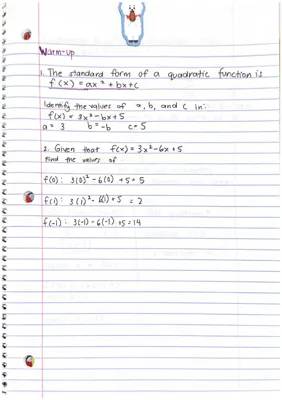 Warm-up
1. The standard form of a quadratic function is
f(x) = ax² + bx + c
Identify the values of a, b, and c in:
f(x) = 3x² - 6x + 5
a = 3 b = -6 c = 5
2. Given that f(x) = 3x² - 6x + 5
find the values of
f(0): 3(0)² - 6(0) + 5 = 5
f(1): 3(1)² - 6(1) + 5 = 2
f(-1): 3(-1) - 6(-1) + 5 = 14